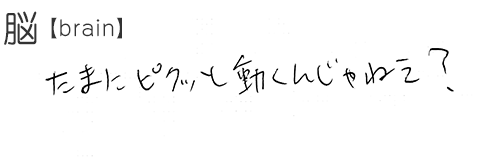 脳【brain】
たまにピクッと動くんじゃねえ?